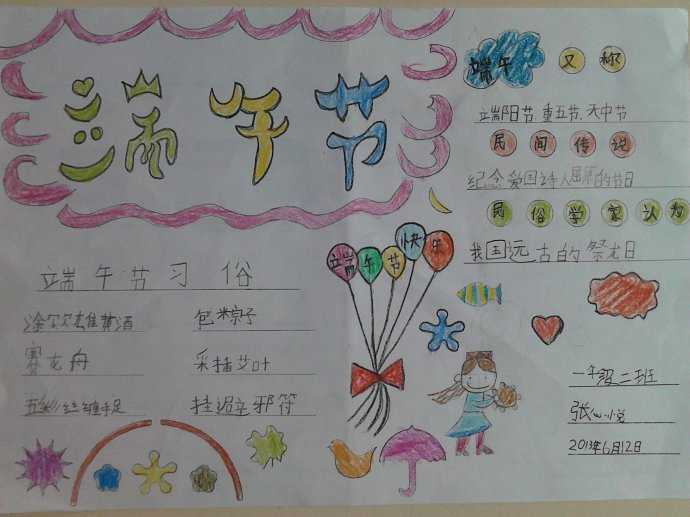 端午节
端午 又称
端阳节、重五节、天中节
民间传说
纪念爱国诗人屈原的节日
民俗学家认为
我国远古的祭龙日
端午节快乐
端午节习俗
涂雄黄酒 包粽子
赛龙舟 采插艾叶
五彩丝缠手足 挂避邪符
一年级二班
张心悦
2013年6月12日